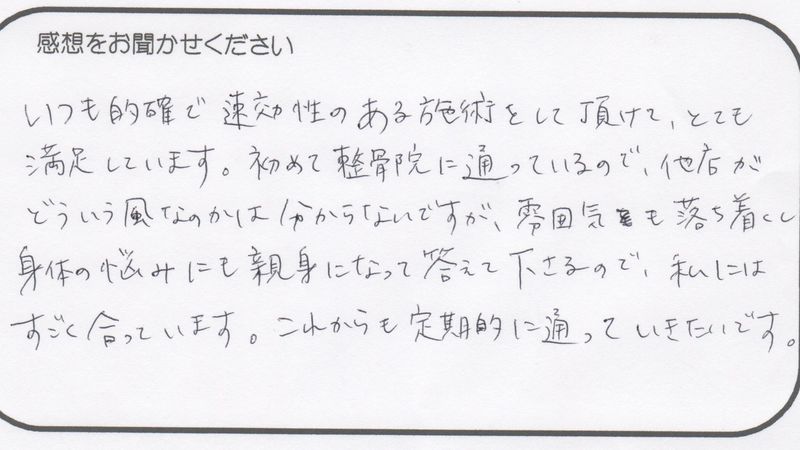 感想をお聞かせください
いつも的確で速効性のある施術をして頂けて、とても
満足しています。初めて整骨院に通っているので、他店が
どういう風なのかは分からないですが、雰囲気も落ち着くし
身体の悩みにも親身になって答えて下さるので、私には
すごく合っています。これからも定期的に通っていきたいです。